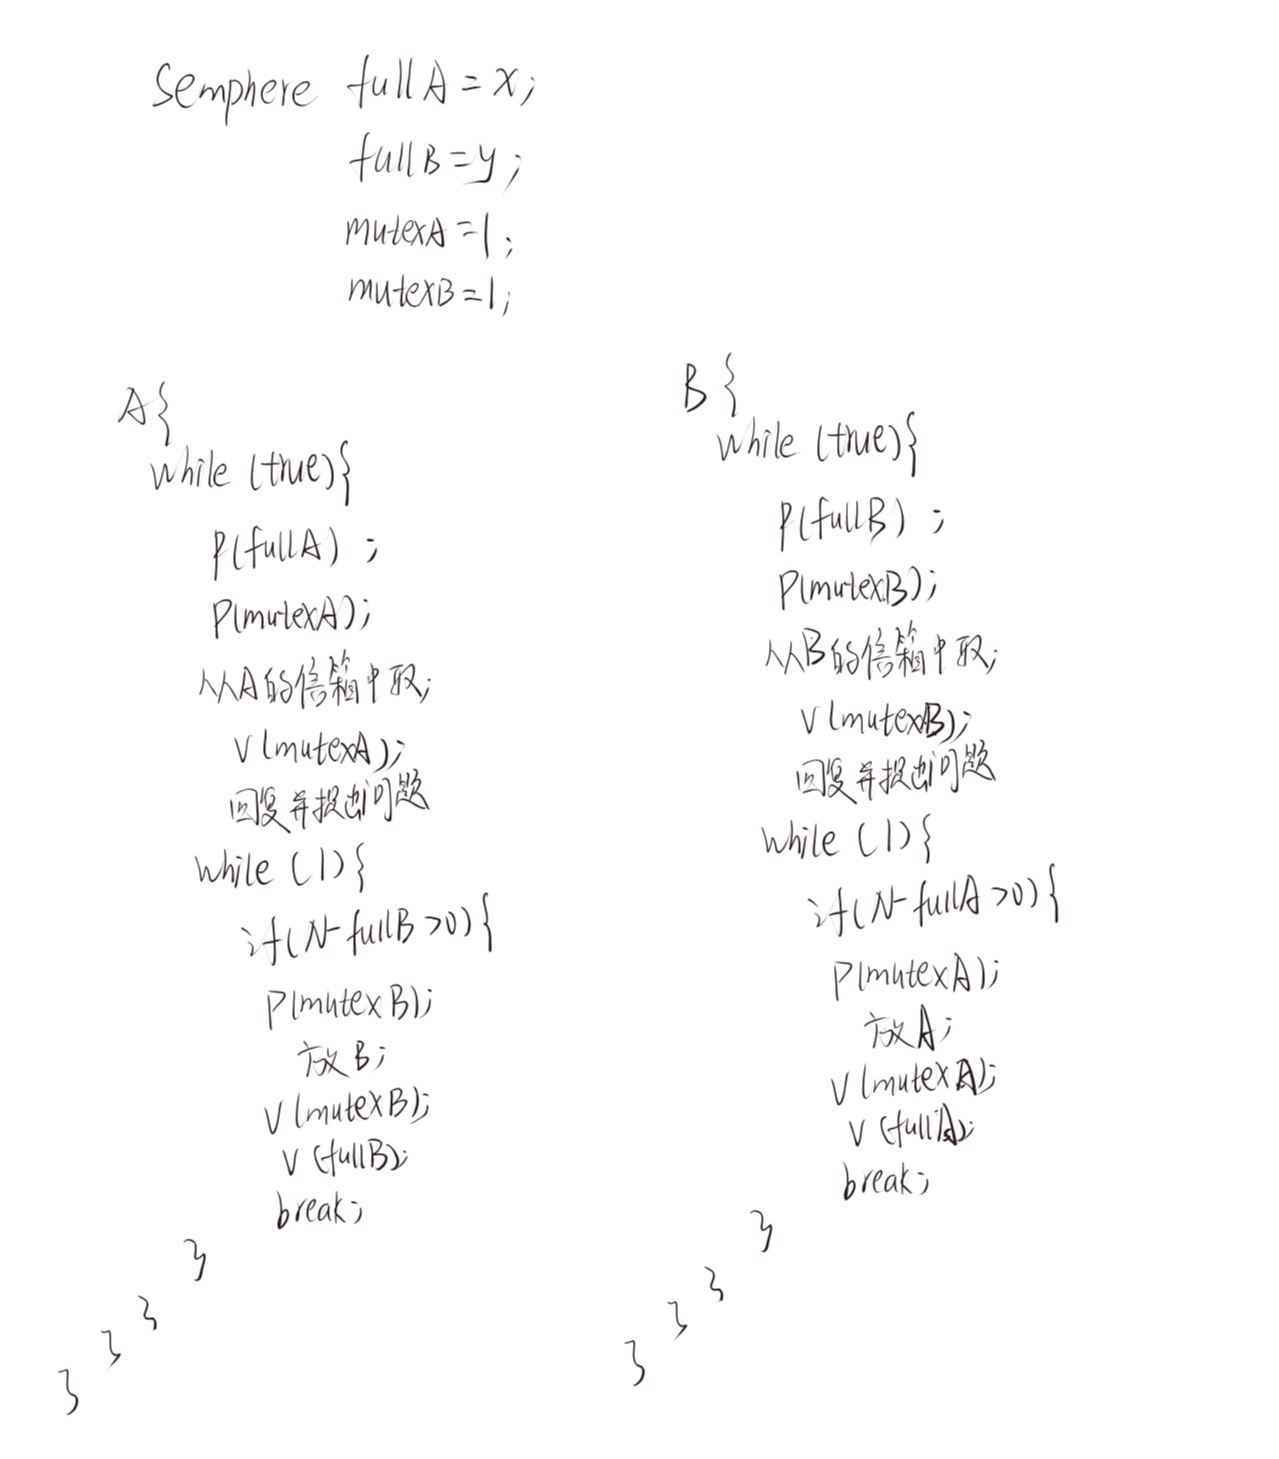 Semphere fullA=x;
fullB=y;
mutexA=1;
mutexB=1;
A{
while (true){
P(fullA) ;
P(mutexA);
从A的信箱中取;
V(mutexA);
回复并提出问题
while (1){
if(N-fullB>0){
P(mutexB);
放B;
V(mutexB);
V(fullB);
break;
}
}
}
}
B{
while (true){
P(fullB) ;
P(mutexB);
从B的信箱中取;
V(mutexB);
回复并提出问题
while (1){
if(N-fullA>0){
P(mutexA);
放A;
V(mutexA);
V(fullA);
break;
}
}
}
}